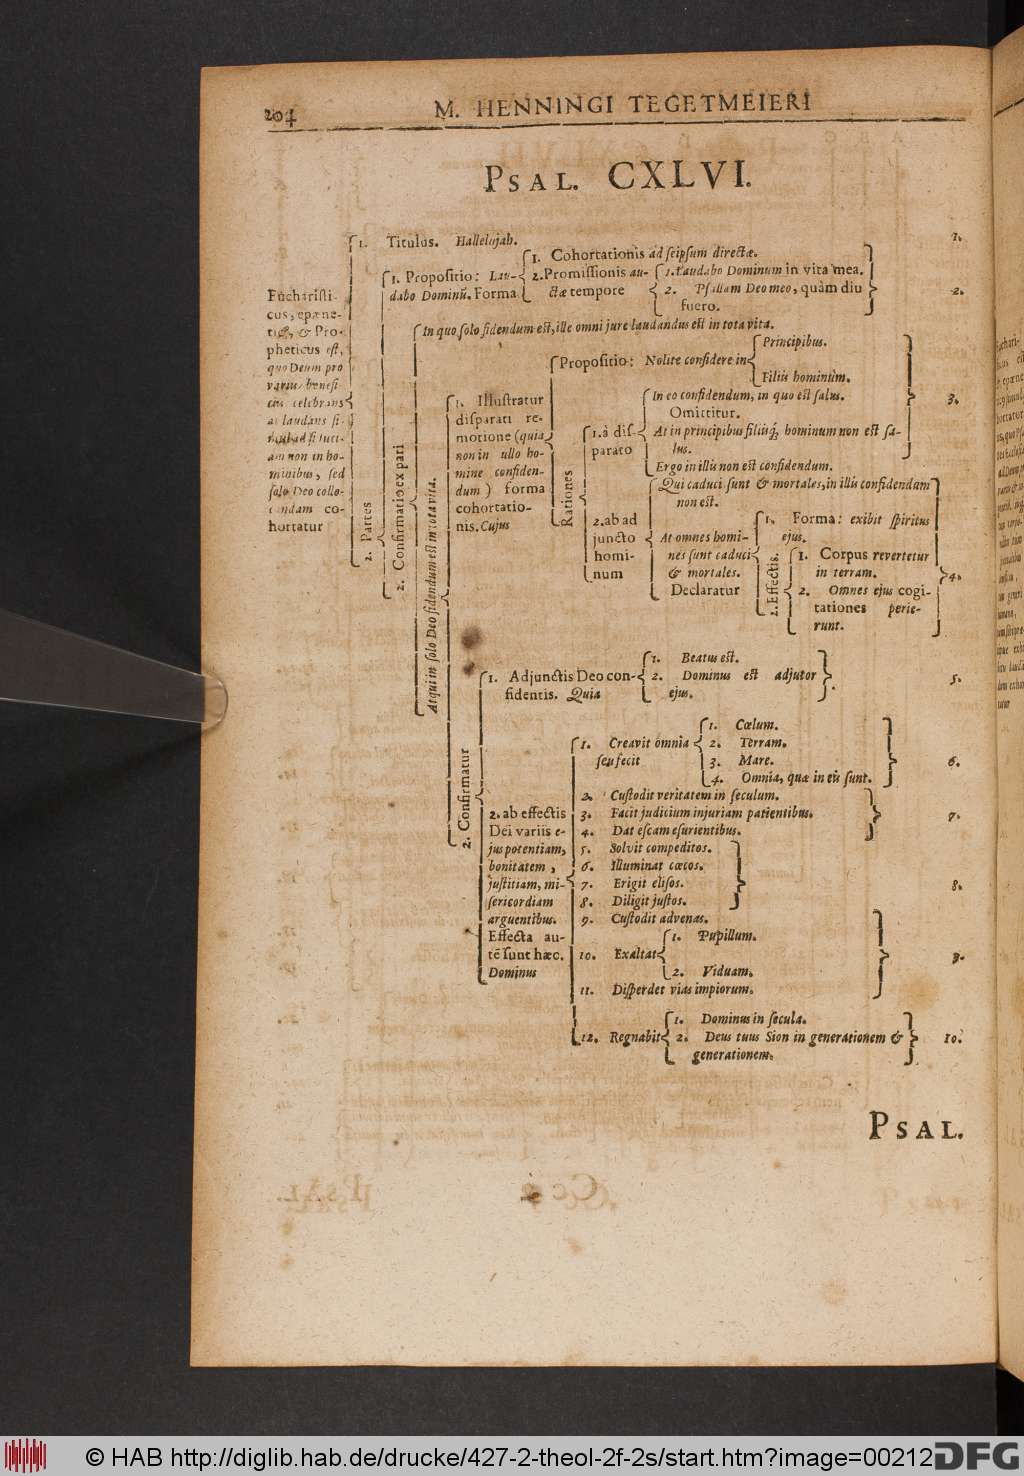 204
M. HENNINGI TEGETMEIERI
PSAL. CXLVI.
1. Titulus. Hallelujah.
1.
Euchariſti-
cus, epæne-
ticus, & Pro-
pheticus eſt,
quo Deum pro
variis benefi
ciis celebrans
ac laudans ſi-
am non in ho-
minibus, ſed
ſolo Deo collo-
candam co-
hortatur
2. Partes
1. Propoſitio: Lau-
dabo Dominū. Forma
1. Cohortationis ad ſeipſum directæ.
2. Promiſſionis au-
ctæ tempore
1. Laudabo Dominum in vita mea.
2. Pſallam Deo meo, quàm diu
fuero.
2.
2. Confirmatio ex pari
In quo ſolo fidendum eſt, ille omni jure laudandus eſt in tota vita.
Atqui in ſolo Deo fidendum eſt in tota vita.
1. Illuſtratur
diſparati re-
motione (quia
non in ullo ho-
mine confiden-
dum) forma
cohortatio-
nis. Cujus
Propoſitio: Nolite confidere in
Principibus.
Filiis hominum.
Rationes
1. à diſ-
parato
In eo confidendum, in quo eſt ſalus.
Omittitur.
At in principibus filiisq́; hominum non eſt ſa-
lus.
Ergo in illis non eſt confidendum.
3.
2. ab ad
juncto
homi-
num
Qui caduci ſunt & mortales, in illis confidendum
non eſt.
At omnes homi-
nes ſunt caduci
& mortales.
Declaratur
1. Forma: exibit ſpiritus
ejus.
2. Effectis.
1. Corpus revertetur
in terram.
2. Omnes ejus cogi-
tationes perie-
runt.
4.
2. Confirmatur
1. Adjunctis Deo con-
fidentis. Quia
1. Beatus eſt.
2. Dominus eſt adjutor
ejus.
5.
2. ab effectis
Dei variis e-
jus potentiam,
bonitatem,
juſtitiam, mi-
ſericordiam
arguentibus.
Effecta au-
tē ſunt hæc.
Dominus
1. Creavit omnia
ſeu fecit
1. Cœlum.
2. Terram.
3. Mare.
4. Omnia, quæ in eis ſunt.
6.
2. Cuſtodit veritatem in ſeculum.
3. Facit judicium injuriam patientibus.
4. Dat eſcam eſurientibus.
7.
5. Solvit compeditos.
6. Illuminat cœcos.
7. Erigit eliſos.
8. Diligit juſtos.
8.
9. Cuſtodit advenas.
10. Exaltat
1. Pupillum.
2. Viduam.
11. Diſperdet vias impiorum.
9.
12. Regnabit
1. Dominus in ſecula.
2. Deus tuus Sion in generationem &
generationem.
10.
PSAL.
© HAB http://diglib.hab.de/drucke/427-2-theol-2f-2s/start.htm?image=00212
DFG